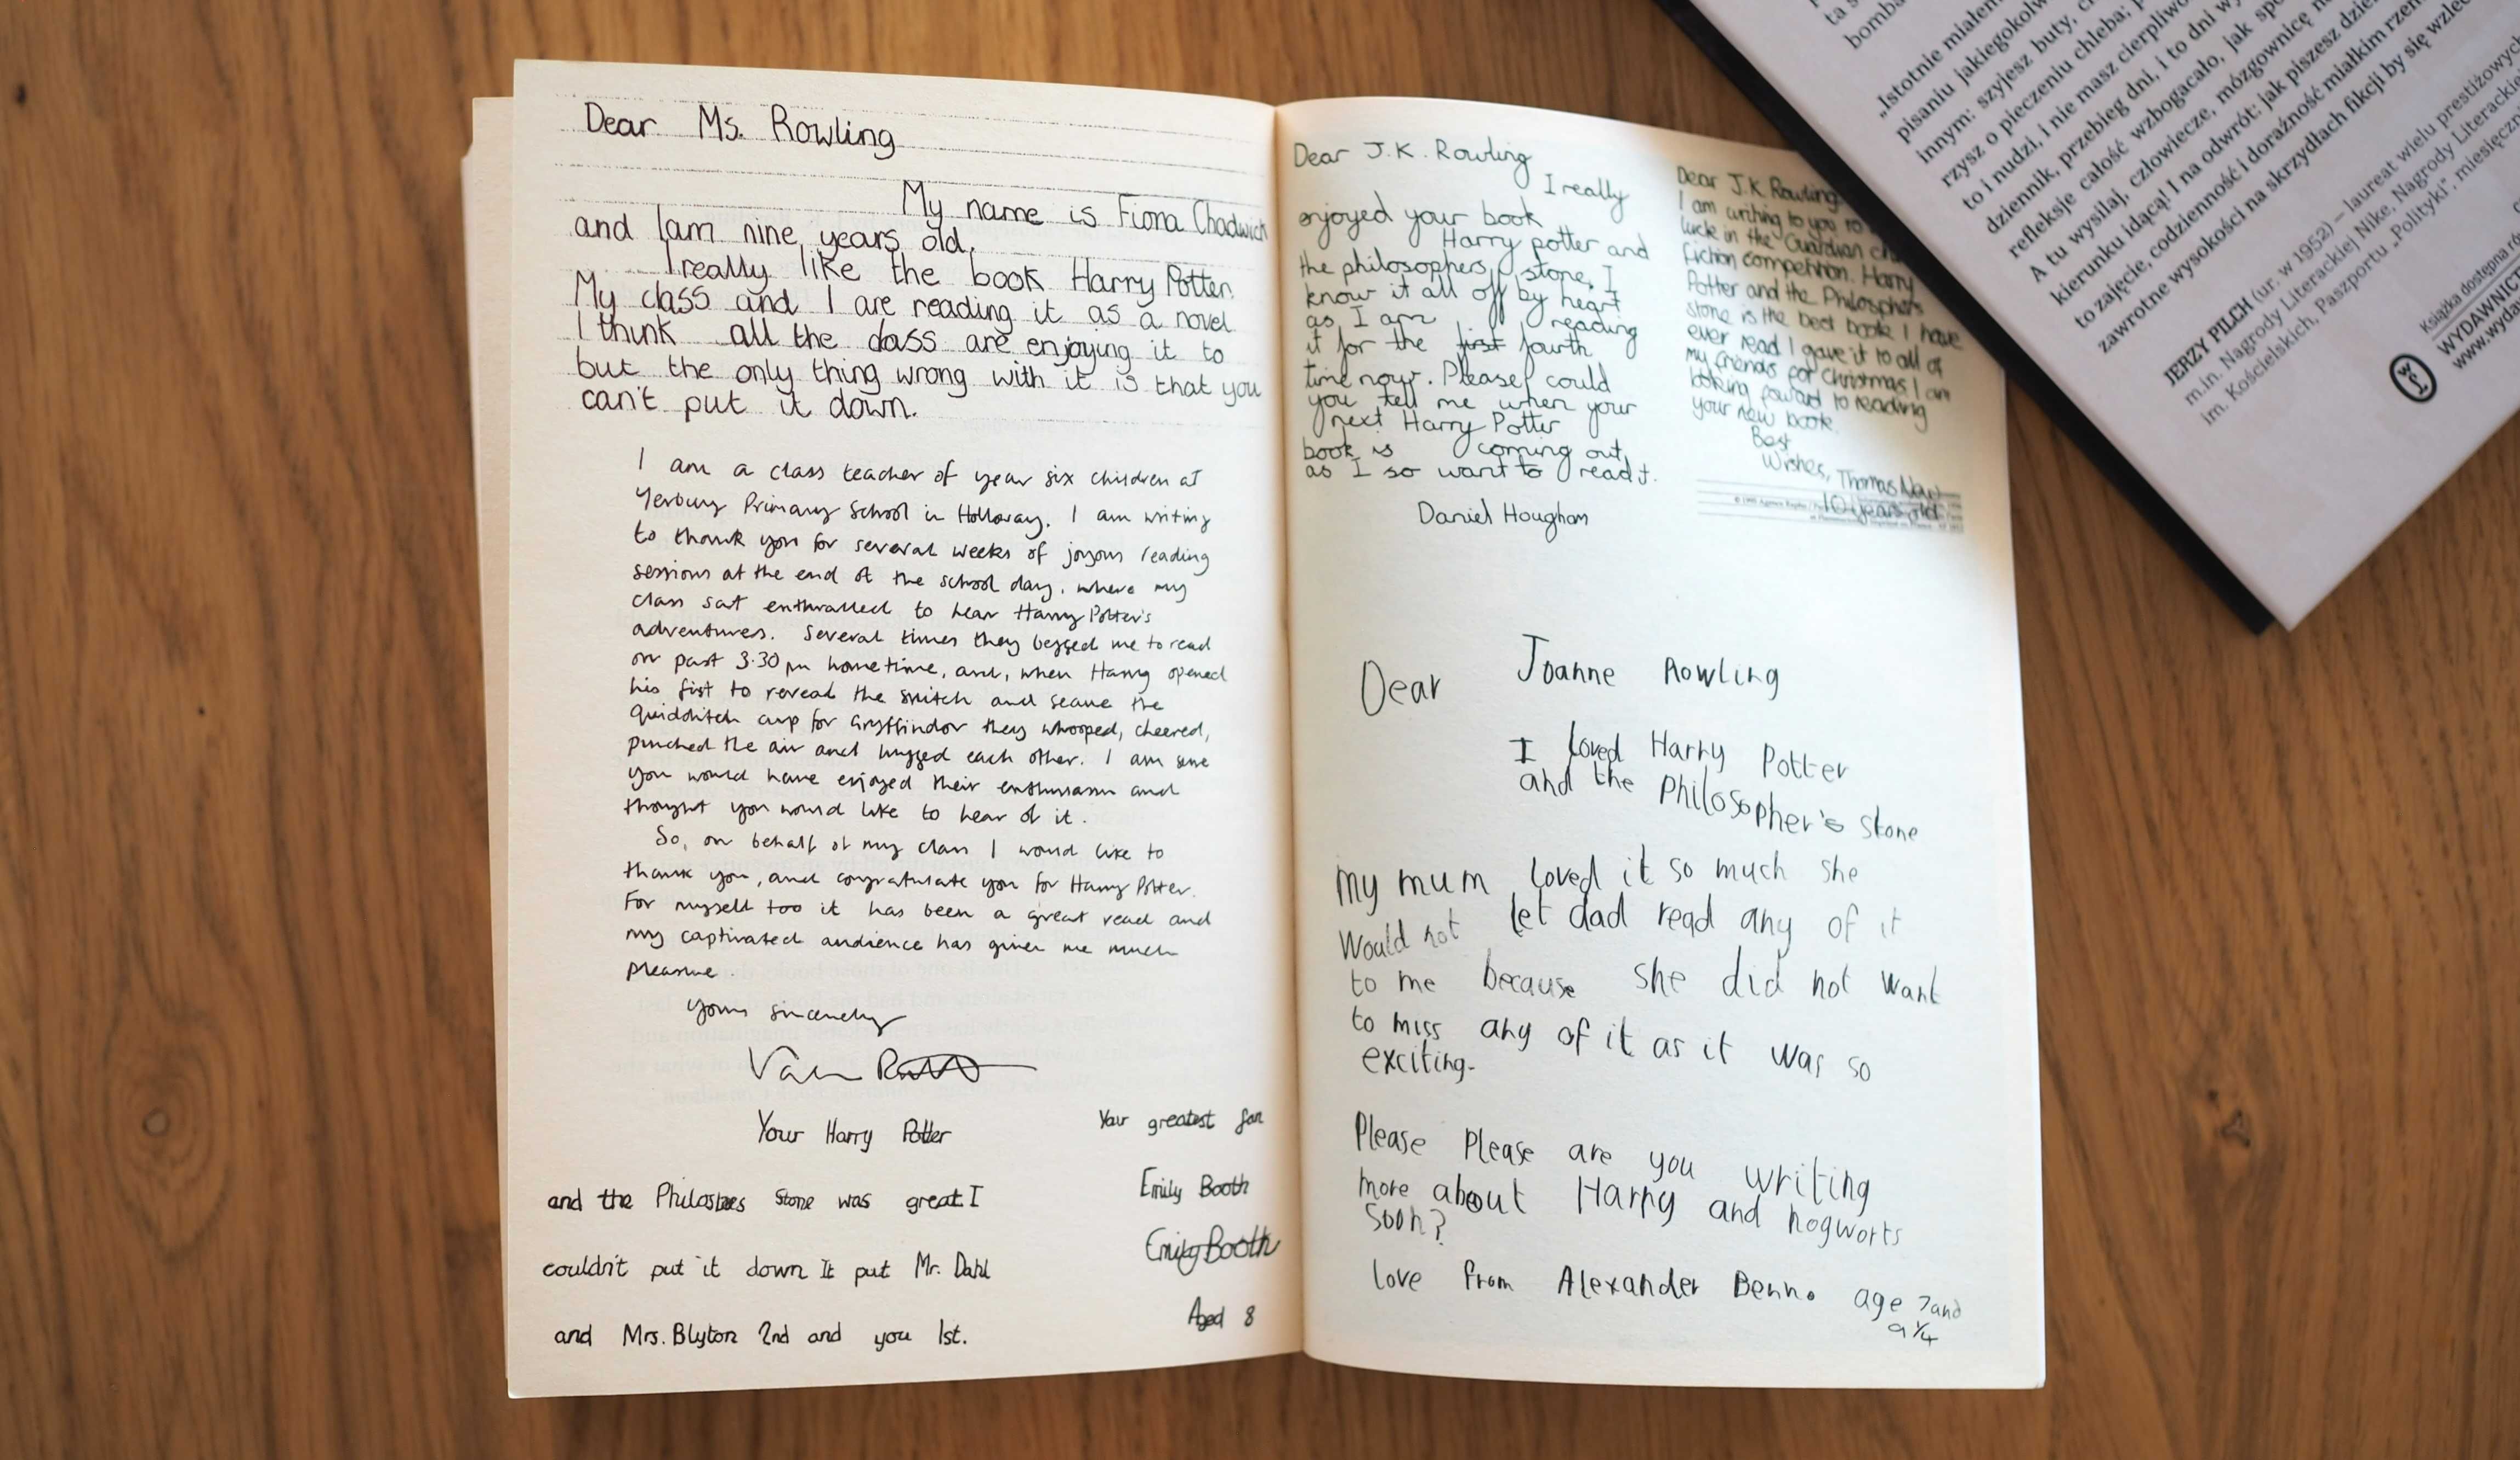 Dear Ms. Rowling
My name is Fiona Chadwick
and I am nine years old.
I really like the book Harry Potter.
My class and I are reading it as a novel
I think all the class are enjoying it to
but the only thing wrong with it is that you
can't put it down.
I am a class teacher of year six children at
Yerbury Primary School in Holloway. I am writing
to thank you for several weeks of joyous reading
sessions at the end of the school day, where my
class sat enthralled to hear Harry Potter's
adventures. Several times they begged me to read
on past 3.30 pm hometime, and, when Harry opened
his fist to reveal the snitch and secure the
Quidditch cup for Gryffindor they whooped, cheered,
punched the air and hugged each other. I am sure
you would have enjoyed their enthusiasm and
thought you would like to hear of it.
So, on behalf of my class I would like to
thank you, and congratulate you for Harry Potter.
For myself too it has been a great read and
my captivated audience has given me much
pleasure.
Yours sincerely
Your Harry Potter
and the Philosbes Stone was great I
couldn't put it down It put Mr. Dahl
and Mrs. Blyton 2nd and you 1st.
Your greatest fan
Emily Booth
Emily Booth
Aged 8
Dear J.K. Rowling
I really
enjoyed your book
Harry potter and
the philosophers stone, I
know it all off by heart
as I am reading
it for the first fourth
time now. Please could
you tell me when your
next Harry Potter
book is coming out,
as I so want to read it.
Daniel Hougham
Dear J.K. Rowling
I am writing to you to
luck in the Guardian
fiction competition. Harry
Potter and the Philosphers
stone is the best book I have
ever read I gave it to all of
my friends for christmas I am
looking foward to reading
your new book.
Best
Wishes, Thomas
10 years old
Dear Joanne Rowling
I loved Harry Potter
and the Philosopher's stone
my mum loved it so much she
would not let dad read any of it
to me because she did not want
to miss any of it as it was so
exciting.
Please Please are you writing
more about Harry and hogworts
soon?
love from Alexander Benn. age 7 and
a 1/4
bomba
„Istotnie miałem
pisaniu jakiegokolw
innym: szyjesz buty,
rzysz o pieczeniu chleba;
to i nudzi, i nie masz cierpliwo
dziennik, przebieg dni, i to dni
refleksje całość wzbogacało, jak
A tu wysilaj, człowiecze, mózgownicę
kierunku idącą! I na odwrót: jak piszesz
to zajęcie, codzienność i doraźność miałkim
zawrotne wysokości na skrzydłach fikcji by się
JERZY PILCH (ur. w 1952) – laureat wielu prestiżowych
m.in. Nagrody Literackiej Nike, Nagrody Literackiej
im. Kościelskich, Paszportu „Polityki", miesięczn
Książka dostępna
WYDAWNICT
www.wyda